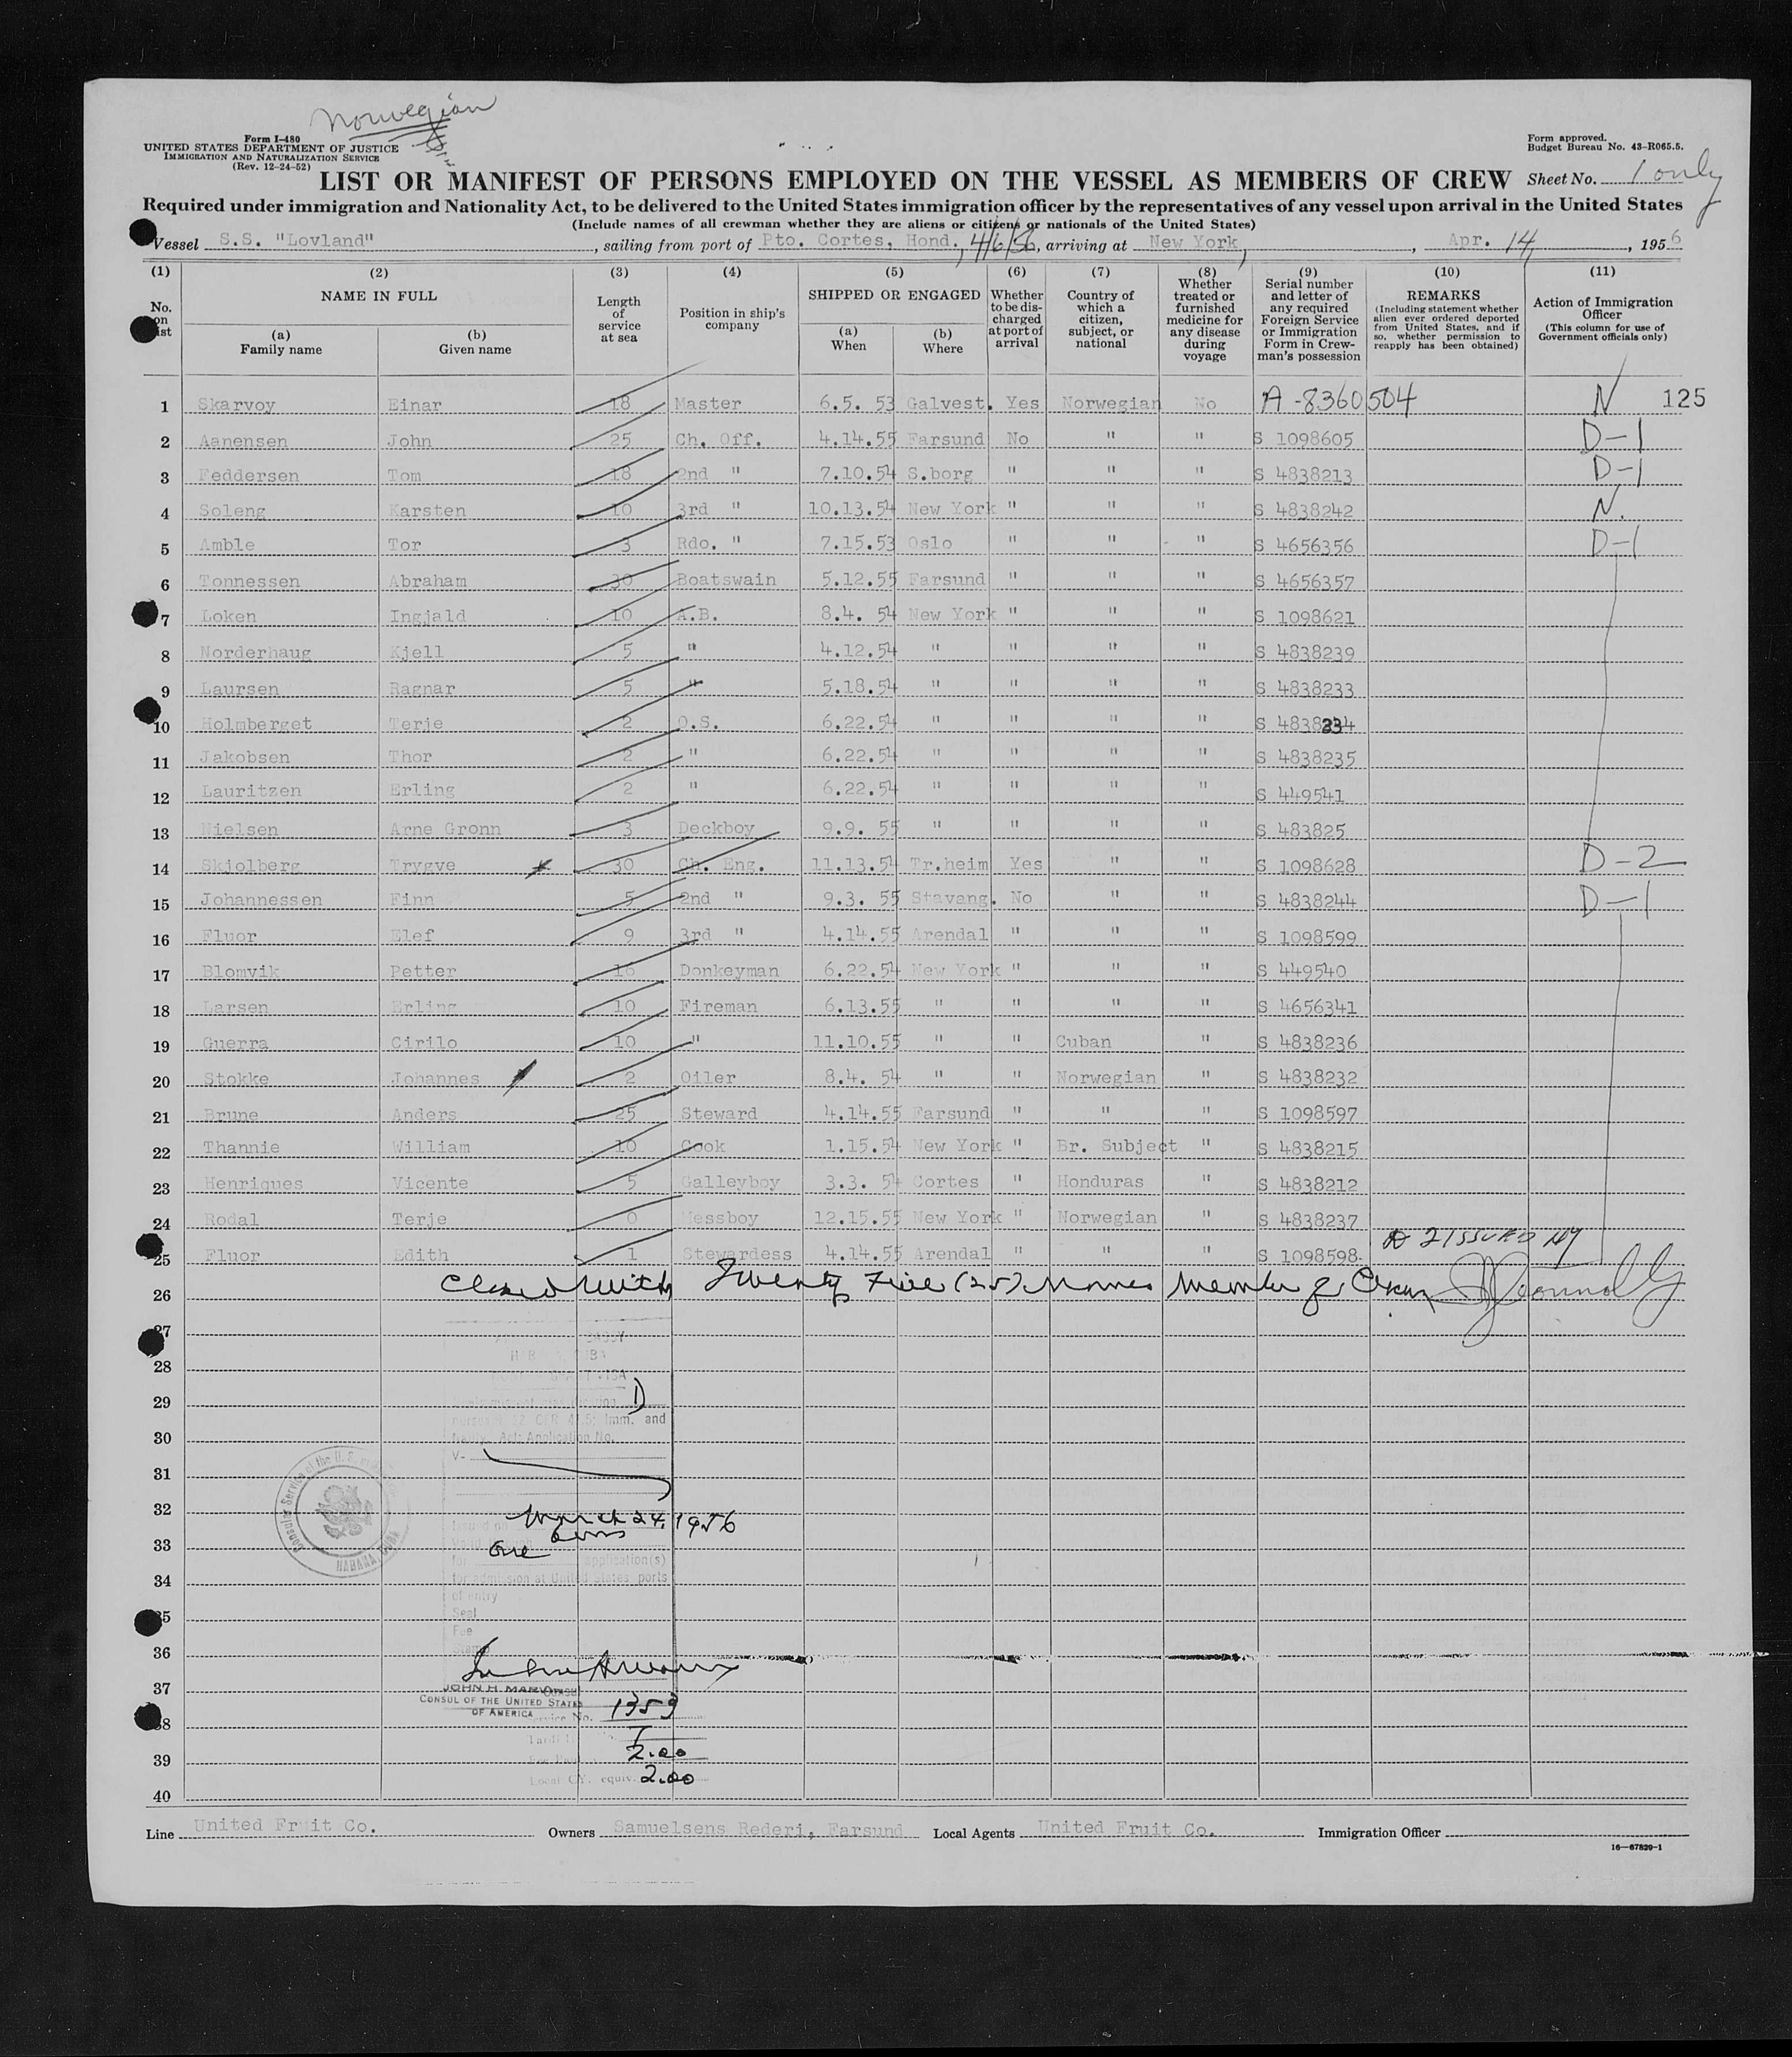 Norwegian
Form I-480
UNITED STATES DEPARTMENT OF JUSTICE
IMMIGRATION AND NATURALIZATION SERVICE
(Rev. 12-24-52)
Form approved.
Budget Bureau No. 43-R065.5.
LIST OR MANIFEST OF PERSONS EMPLOYED ON THE VESSEL AS MEMBERS OF CREW Sheet No. 1 only
Required under immigration and Nationality Act, to be delivered to the United States immigration officer by the representatives of any vessel upon arrival in the United States
(Include names of all crewman whether they are aliens or citizens or nationals of the United States)
Vessel S.S. "Lovland", sailing from port of Pto. Cortes, Hond., 4/6/56, arriving at New York, Apr. 14, 1956
(1) (2) (3) (4) (5) (6) (7) (8) (9) (10) (11)
No. on list NAME IN FULL (a) Family name (b) Given name Length of service at sea Position in ship's company SHIPPED OR ENGAGED (a) When (b) Where Whether to be discharged at port of arrival Country of which a citizen, subject, or national Whether treated or furnished medicine for any disease during voyage Serial number and letter of any required Foreign Service or Immigration Form in Crewman's possession REMARKS (Including statement whether alien ever ordered deported from United States, and if so, whether permission to reapply has been obtained) Action of Immigration Officer (This column for use of Government officials only)
1 Skarvoy Einar 18 Master 6.5. 53 Galvest. Yes Norwegian No A-8360504 N 125
2 Aanensen John 25 Ch. Off. 4.14.55 Farsund No " " S 1098605 D-1
3 Feddersen Tom 18 2nd " 7.10.54 S.borg " " " S 4838213 D-1
4 Soleng Karsten 10 3rd " 10.13.54 New York " " " S 4838242 N.
5 Amble Tor 3 Rdo. " 7.15.53 Oslo " " " S 4656356 D-1
6 Tonnessen Abraham 30 Boatswain 5.12.55 Farsund " " " S 4656357
7 Loken Ingjald 10 A.B. 8.4. 54 New York " " " S 1098621
8 Norderhaug Kjell 5 " 4.12.54 " " " " S 4838239
9 Laursen Ragnar 5 " 5.18.54 " " " " S 4838233
10 Holmberget Terje 2 O.S. 6.22.54 " " " " S 4838234
11 Jakobsen Thor 2 " 6.22.54 " " " " S 4838235
12 Lauritzen Erling 2 " 6.22.54 " " " " S 449541
13 Nielsen Arne Gronn 3 Deckboy 9.9. 55 " " " " S 483825
14 Skjolberg Trygve 30 Ch. Eng. 11.13.54 Tr.heim Yes " " S 1098628 D-2
15 Johannessen Finn 5 2nd " 9.3. 55 Stavang. No " " S 4838244 D-1
16 Fluor Elef 9 3rd " 4.14.55 Arendal " " " S 1098599
17 Blomvik Petter 16 Donkeyman 6.22.54 New York " " " S 449540
18 Larsen Erling 10 Fireman 6.13.55 " " " " S 4656341
19 Guerra Cirilo 10 " 11.10.55 " " Cuban " S 4838236
20 Stokke Johannes 2 Oiler 8.4. 54 " " Norwegian " S 4838232
21 Brune Anders 25 Steward 4.14.55 Farsund " " " S 1098597
22 Thannie William 10 Cook 1.15.54 New York " Br. Subject " S 4838215
23 Henriques Vicente 5 Galleyboy 3.3. 54 Cortes " Honduras " S 4838212
24 Rodal Terje 0 Messboy 12.15.55 New York " Norwegian " S 4838237
25 Fluor Edith 1 Stewardess 4.14.55 Arendal " " " S 1098598
26 Closed With Twenty Five (25) Names Member of Crew
27
28
29 D
Imm. and
30 Application No.
V-
31
32 March 24, 1956
33 One application(s)
34 for admission at United States ports
of entry
35 Seal
Fee
36 Stamp
37 JOHN H. MARVIN
CONSUL OF THE UNITED STATES
OF AMERICA
Service No. 1353
38
2.00
39
Local CY. equiv. 2.00
40
Consular Service of the U. S.
HABANA, CUBA
Line United Fruit Co. Owners Samuelsens Rederi, Farsund Local Agents United Fruit Co. Immigration Officer
16-67829-1